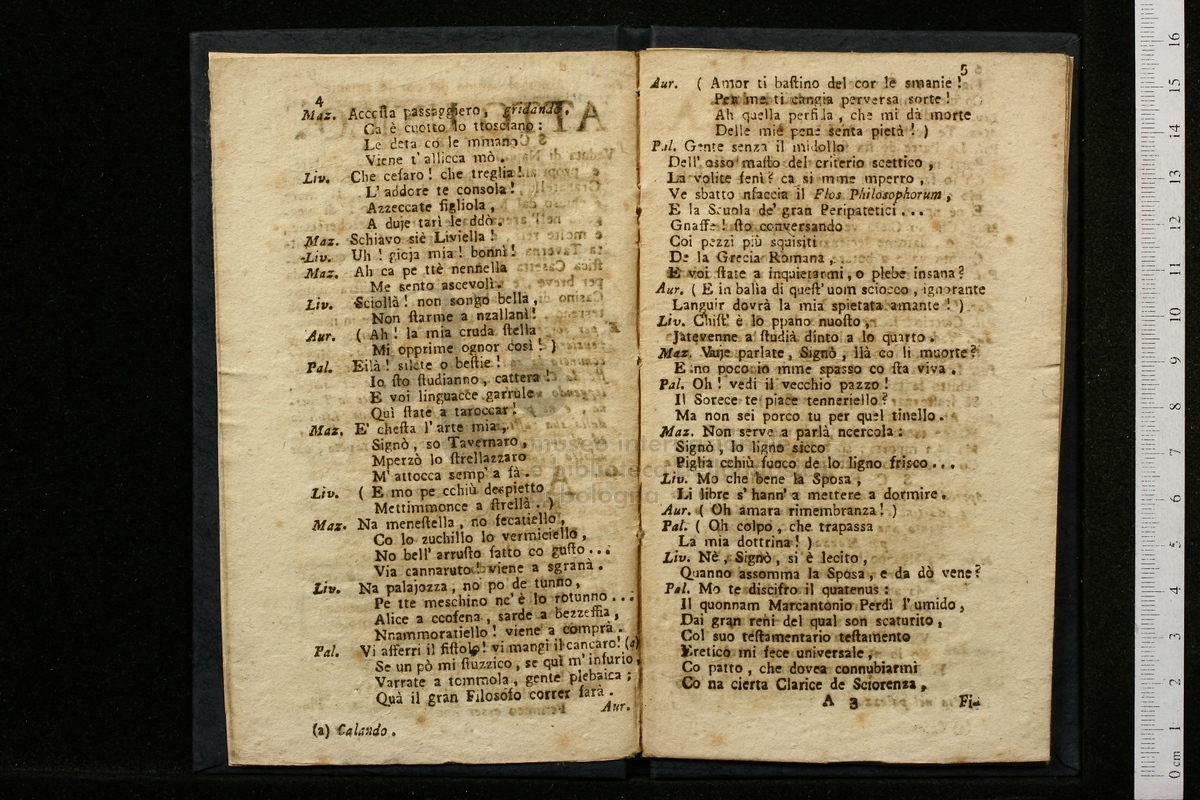 4
Maz. Accosta passaggiero, gridando.
Ca è cuotto lo ttosciano:
Le deta co le mmano
Viene t' allicca mò.
Liv. Che cefaro! che treglia!
L' addore te consola!
Azzeccate figliola,
A duje tarì le ddò.
Maz. Schiavo siè Liviella!
Liv. Uh! gioja mia! bonnì!
Maz. Ah ca pe ttè nennella
Me sento ascevolì.
Liv. Sciollà! non songo bella,
Non starme a nzallanì!
Aur. (Ah! la mia cruda stella
Mi opprime ognor così!)
Pal. Eilà! silete o bestie!
Io sto studianno, cattera!
E voi linguacce garrule
Quì state a taroccar!
Maz. E' chesta l' arte mia,
Signò, so Tavernaro,
Mperzò lo strellazzaro
M' attocca semp' a fà.
Liv. (E mo pe cchiù despietto
Mettimmonce a strellà.)
Maz. Na menestella, no fecatiello,
Co lo zuchillo lo vermiciello,
No bell' arrusto fatto co gusto...
Via cannaruto! viene a sgranà.
Liv. Na palajozza, no po de tunno,
Pe tte meschino nc' è lo rotunno...
Alice a ccofena, sarde a bezzeffia,
Nnammoratiello! viene a comprà.
Pal. Vi afferri il fistolo! vi mangi il cancaro! (a)
Se un pò mi stuzzico, se quì m' infurio,
Varrate a tommola, gente plebaica;
Quà il gran Filosofo correr farà.
Aur.
(a) Calando.
5
Aur. (Amor ti bastino del cor le smanie!
Per me ti cangia perversa sorte!
Ah quella perfida, che mi dà morte
Delle mie pene senta pietà!)
Pal. Gente senza il midollo
Dell' osso masto del criterio scettico,
La volite fenì? ca si mme mperro,
Ve sbatto nfaccia il Flos Philosophorum,
E la Scuola de' gran Peripatetici...
Gnaffe! sto conversando
Coi pezzi più squisiti
De la Grecia Romana,
E voi state a inquietarmi, o plebe insana?
Aur. (E in balìa di quest' uom sciocco, ignorante
Languir dovrà la mia spietata amante!)
Liv. Chist' è lo ppano nuosto,
Jatevenne a studià dinto a lo quarto.
Maz. Vuje parlate, Signò, llà co li muorte?
E no poco io mme spasso co sta viva.
Pal. Oh! vedi il vecchio pazzo!
Il Sorece te piace tenneriello?
Ma non sei porco tu per quel tinello.
Maz. Non serve a parlà ncercola:
Signò, lo ligno sicco
Piglia cchiù fuoco de lo ligno frisco...
Liv. Mo che bene la Sposa,
Li libre s' hann' a mettere a dormire.
Aur. (Oh amara rimembranza!)
Pal. (Oh colpo, che trapassa
La mia dottrina!)
Liv. Nè, Signò, si è lecito,
Quanno assomma la Sposa, e da dò vene?
Pal. Mo te discifro il quatenus:
Il quonnam Marcantonio Perdi l' umido,
Dai gran reni del qual son scaturito,
Col suo testamentario testamento
Eretico mi fece universale,
Co patto, che dovea connubiarmi
Co na cierta Clarice de Sciorenza,
A 3
Fi-